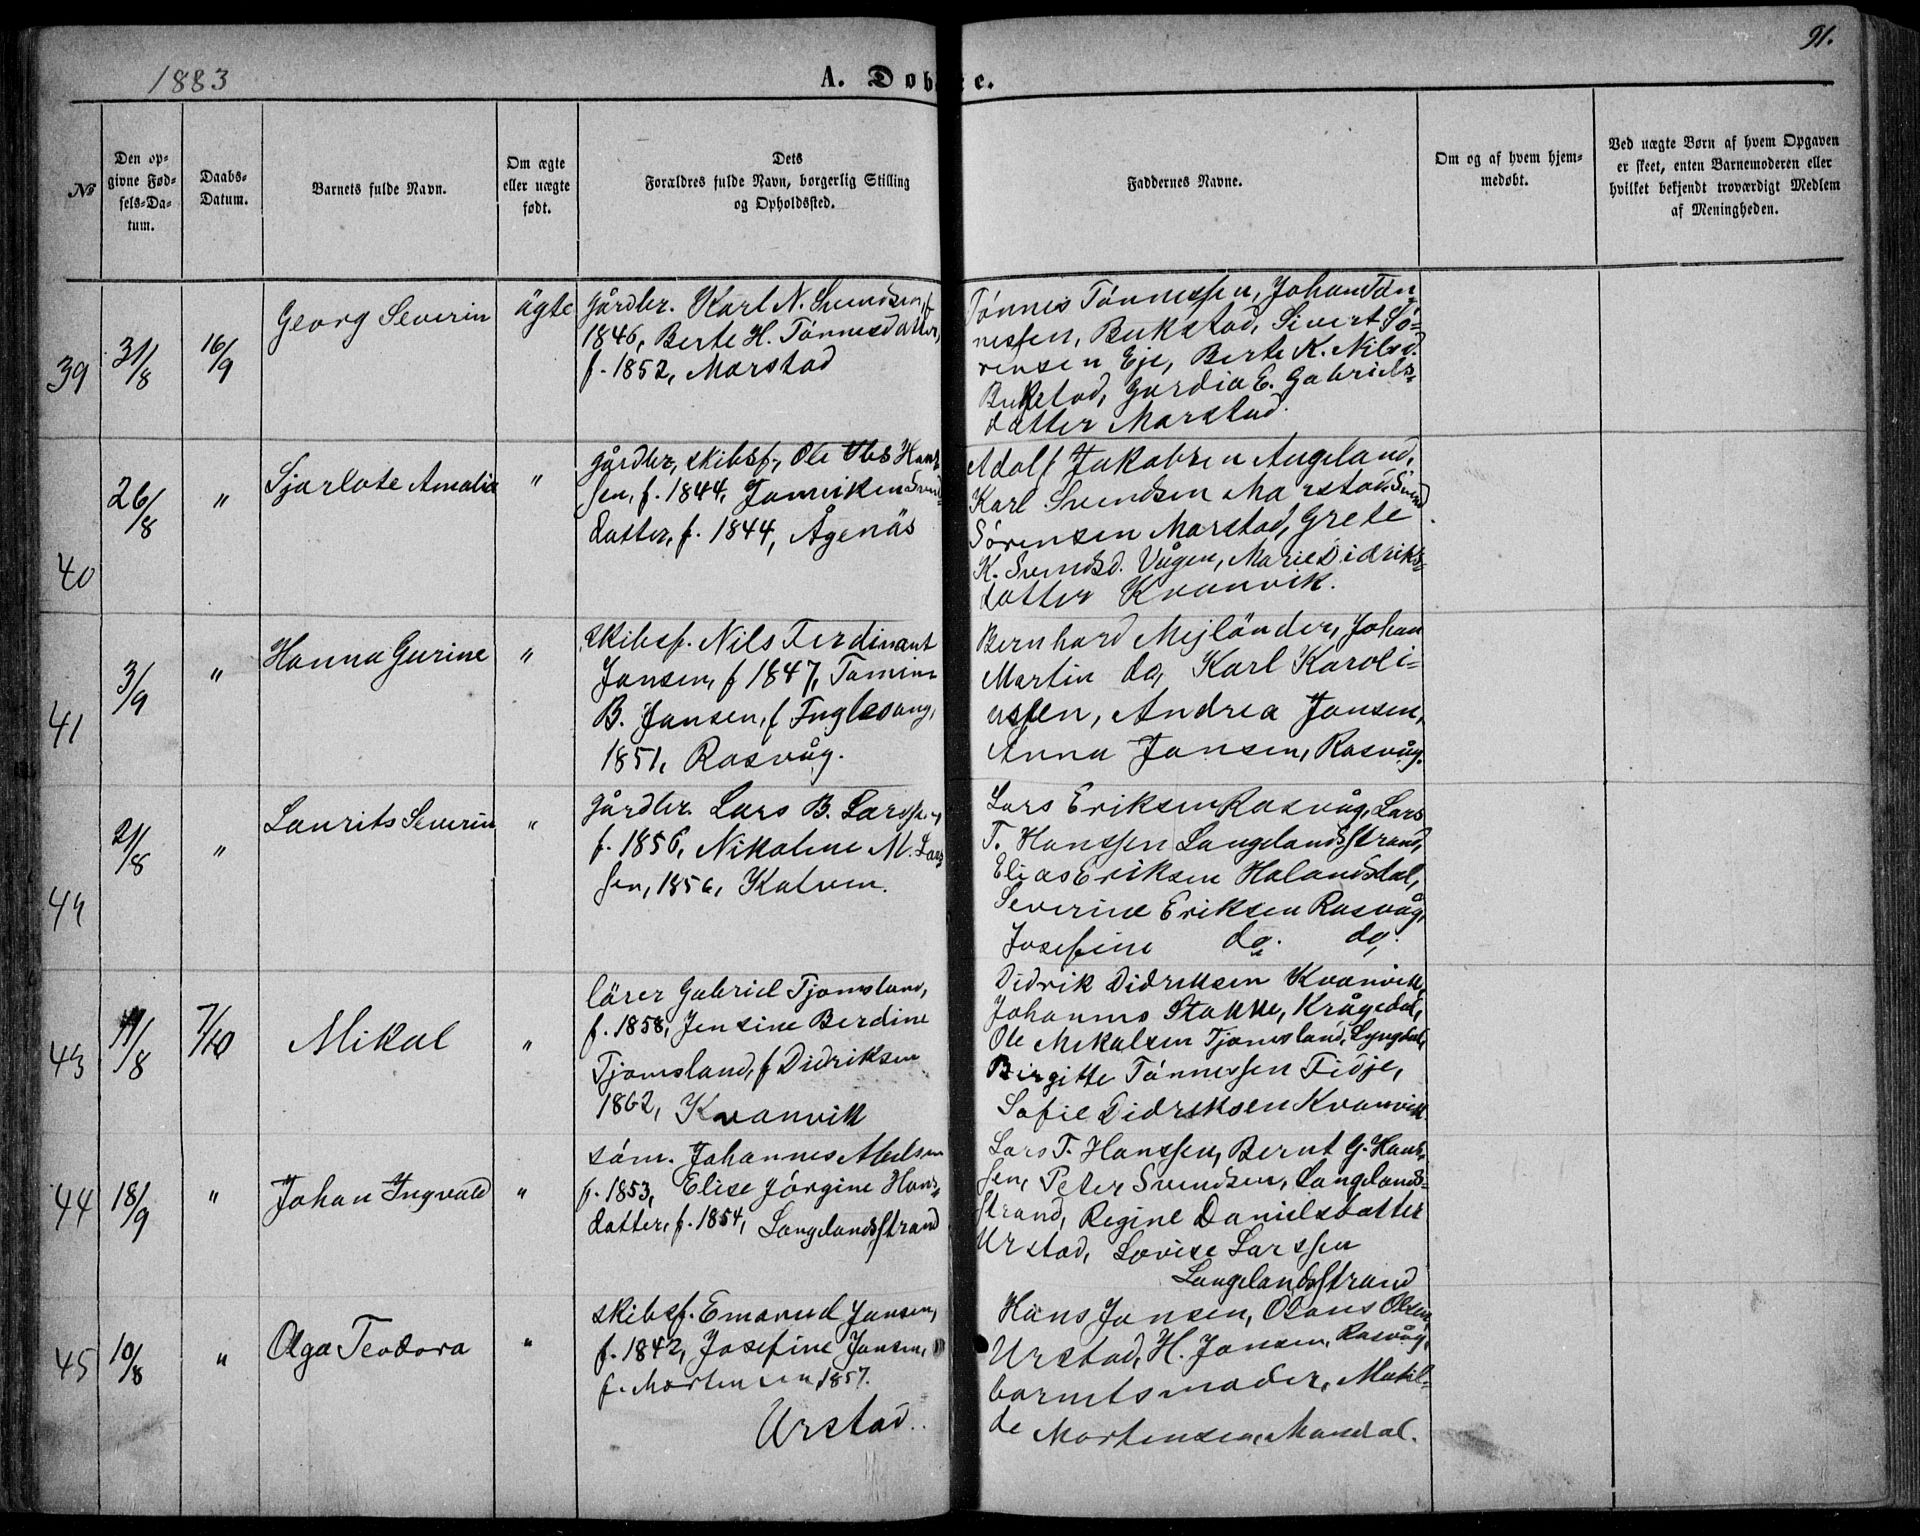 1883
A. Døbte.
91.
№
Den op-
givne Fød-
sels-Da-
tum.
Daabs-
Datum.
Barnets fulde Navn.
Om ægte
eller uægte
født.
Dets
Forældres fulde Navn, borgerlig Stilling
og Opholdssted.
Faddernes Navne.
Om og af hvem hjem-
medøbt.
Ved uægte Børn af hvem Opgaven
er skeet, enten Barnemoderen eller
hvilket bekjendt troværdigt Medlem
af Meningheden.
39
31/8
16/9
Georg Severin
ägte
gårdbr. Karl N. Svendsen, f
1846, Berte H. Tönnesdatter,
f. 1852, Marstad
Tönnes Tönnessen, Johan Tön-
nessen, Bukstad, Sivert Sö-
rensen Eje, Berte K. Nilsd.
Bukstad, Gurdia E. Gabriels-
datter Marstad.
40
26/8
"
Sjarlote Amalia
"
gårdbr, skibsf, Ole Hans-
sen, f. 1844, Svends-
datter, f. 1844, Ågenäs
Adolf Jakobsen Angeland,
Karl Svendsen Marstad, Svend
Sörensen Marstad, Grete
K. Svendsd. Vågen, Marie Didriks-
datter Kvanvik.
41
3/9
"
Hanna Gurine
"
skibsf. Nils Ferdinant
Jansen, f 1847, Tomine
B. Jansen, f Fuglesang,
1851, Rasvåg.
Bernhard Mejländer, Johan
Martin do, Karl Karoli-
ussen, Andrea Jansen,
Anna Jansen, Rasvåg.
42
21/8
"
Laurits Severin
"
gårdbr. Lars B. Larssen,
f. 1856, Nikoline M. Lars-
sen, 1856, Katven.
Lars Eriksen Rasvåg, Lars
T. Hanssen Langelandsstrand,
Elias Eriksen Halandsdal,
Severine Eriksen Rasvåg,
Josefine do. do.
43
11/8
7/10
Mikal
"
lärer Gabriel Tjomsland,
f. 1858, Jensine Berdine
Tjomsland, f Didriksen
1862, Kvanvik
Didrik Didriksen Kvanvik,
Johannes Stakke, Krågedal,
Ole Mikalsen Tjomsland, Lyngdal,
Birgitte Tönnessen Fidje,
Sofie Didriksen Kvanvik
44
18/9
"
Johan Ingvald
"
söm. Johannes
f. 1853, Elise Jörgine Hans-
datter, f. 1854, Langelandsstrand
Lars T. Hanssen, Bernt G. Hans-
sen, Peter Svendsen, Langelands-
strand, Regine Danielsdatter
Urstad, Lovise Larssen
Langelandsstrand
45
10/8
"
Olga Teodora
"
skibsf. Emanuel Jansen,
f. 1842, Josefine Jansen,
f. Mortensen, 1857.
Urstad.
Hans Jansen, Olaus Olsen,
Urstad, H. Jansen, Rasvåg,
barnets moder, Matil-
de Mortensen, Mandal.